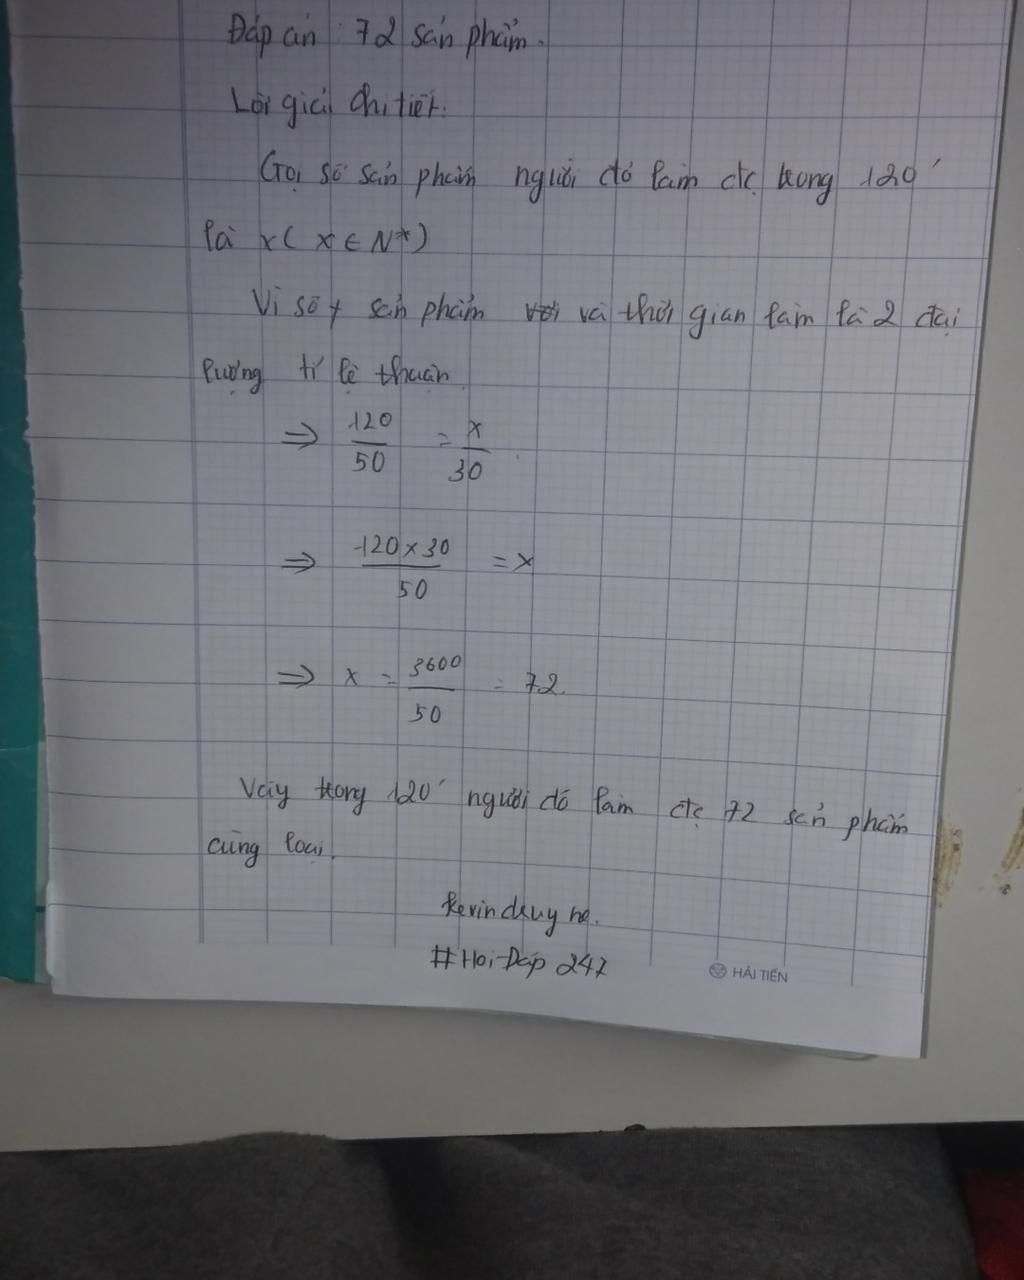 Đáp án : 72 sản phẩm.
Lời giải chi tiết:
Gọi số sản phẩm người đó làm đc trong 120'
là x ( x ∈ N*)
Vì số sản phẩm và thời gian làm là 2 đại
lượng tỉ lệ thuận
⇒ 120/50 = x/30
⇒ 120 x 30/50 = x
⇒ x = 3600/50 = 72
Vậy trong 120' người đó làm đc 72 sản phẩm
cùng loại.
#Hoi-Dap 247
HẢI TIẾN